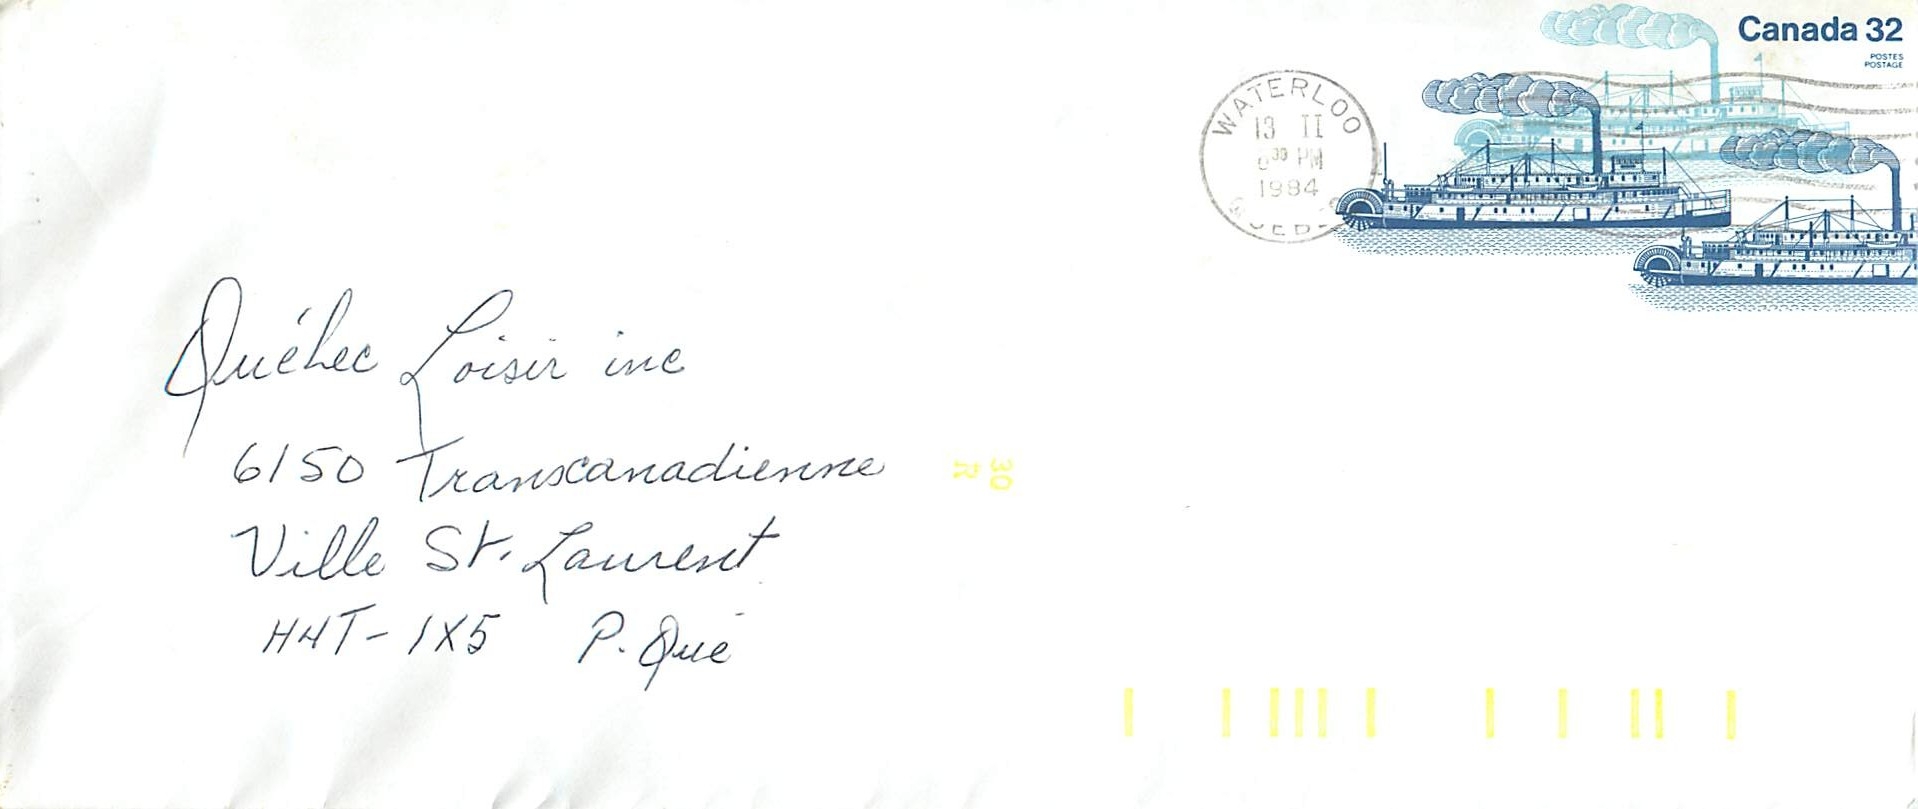 Canada 32
POSTES
POSTAGE
WATERLOO
13 II
PM
1984
Québec Loisir inc
6150 Transcanadienne
Ville St. Laurent
H4T-1X5 P. Qué
30
R